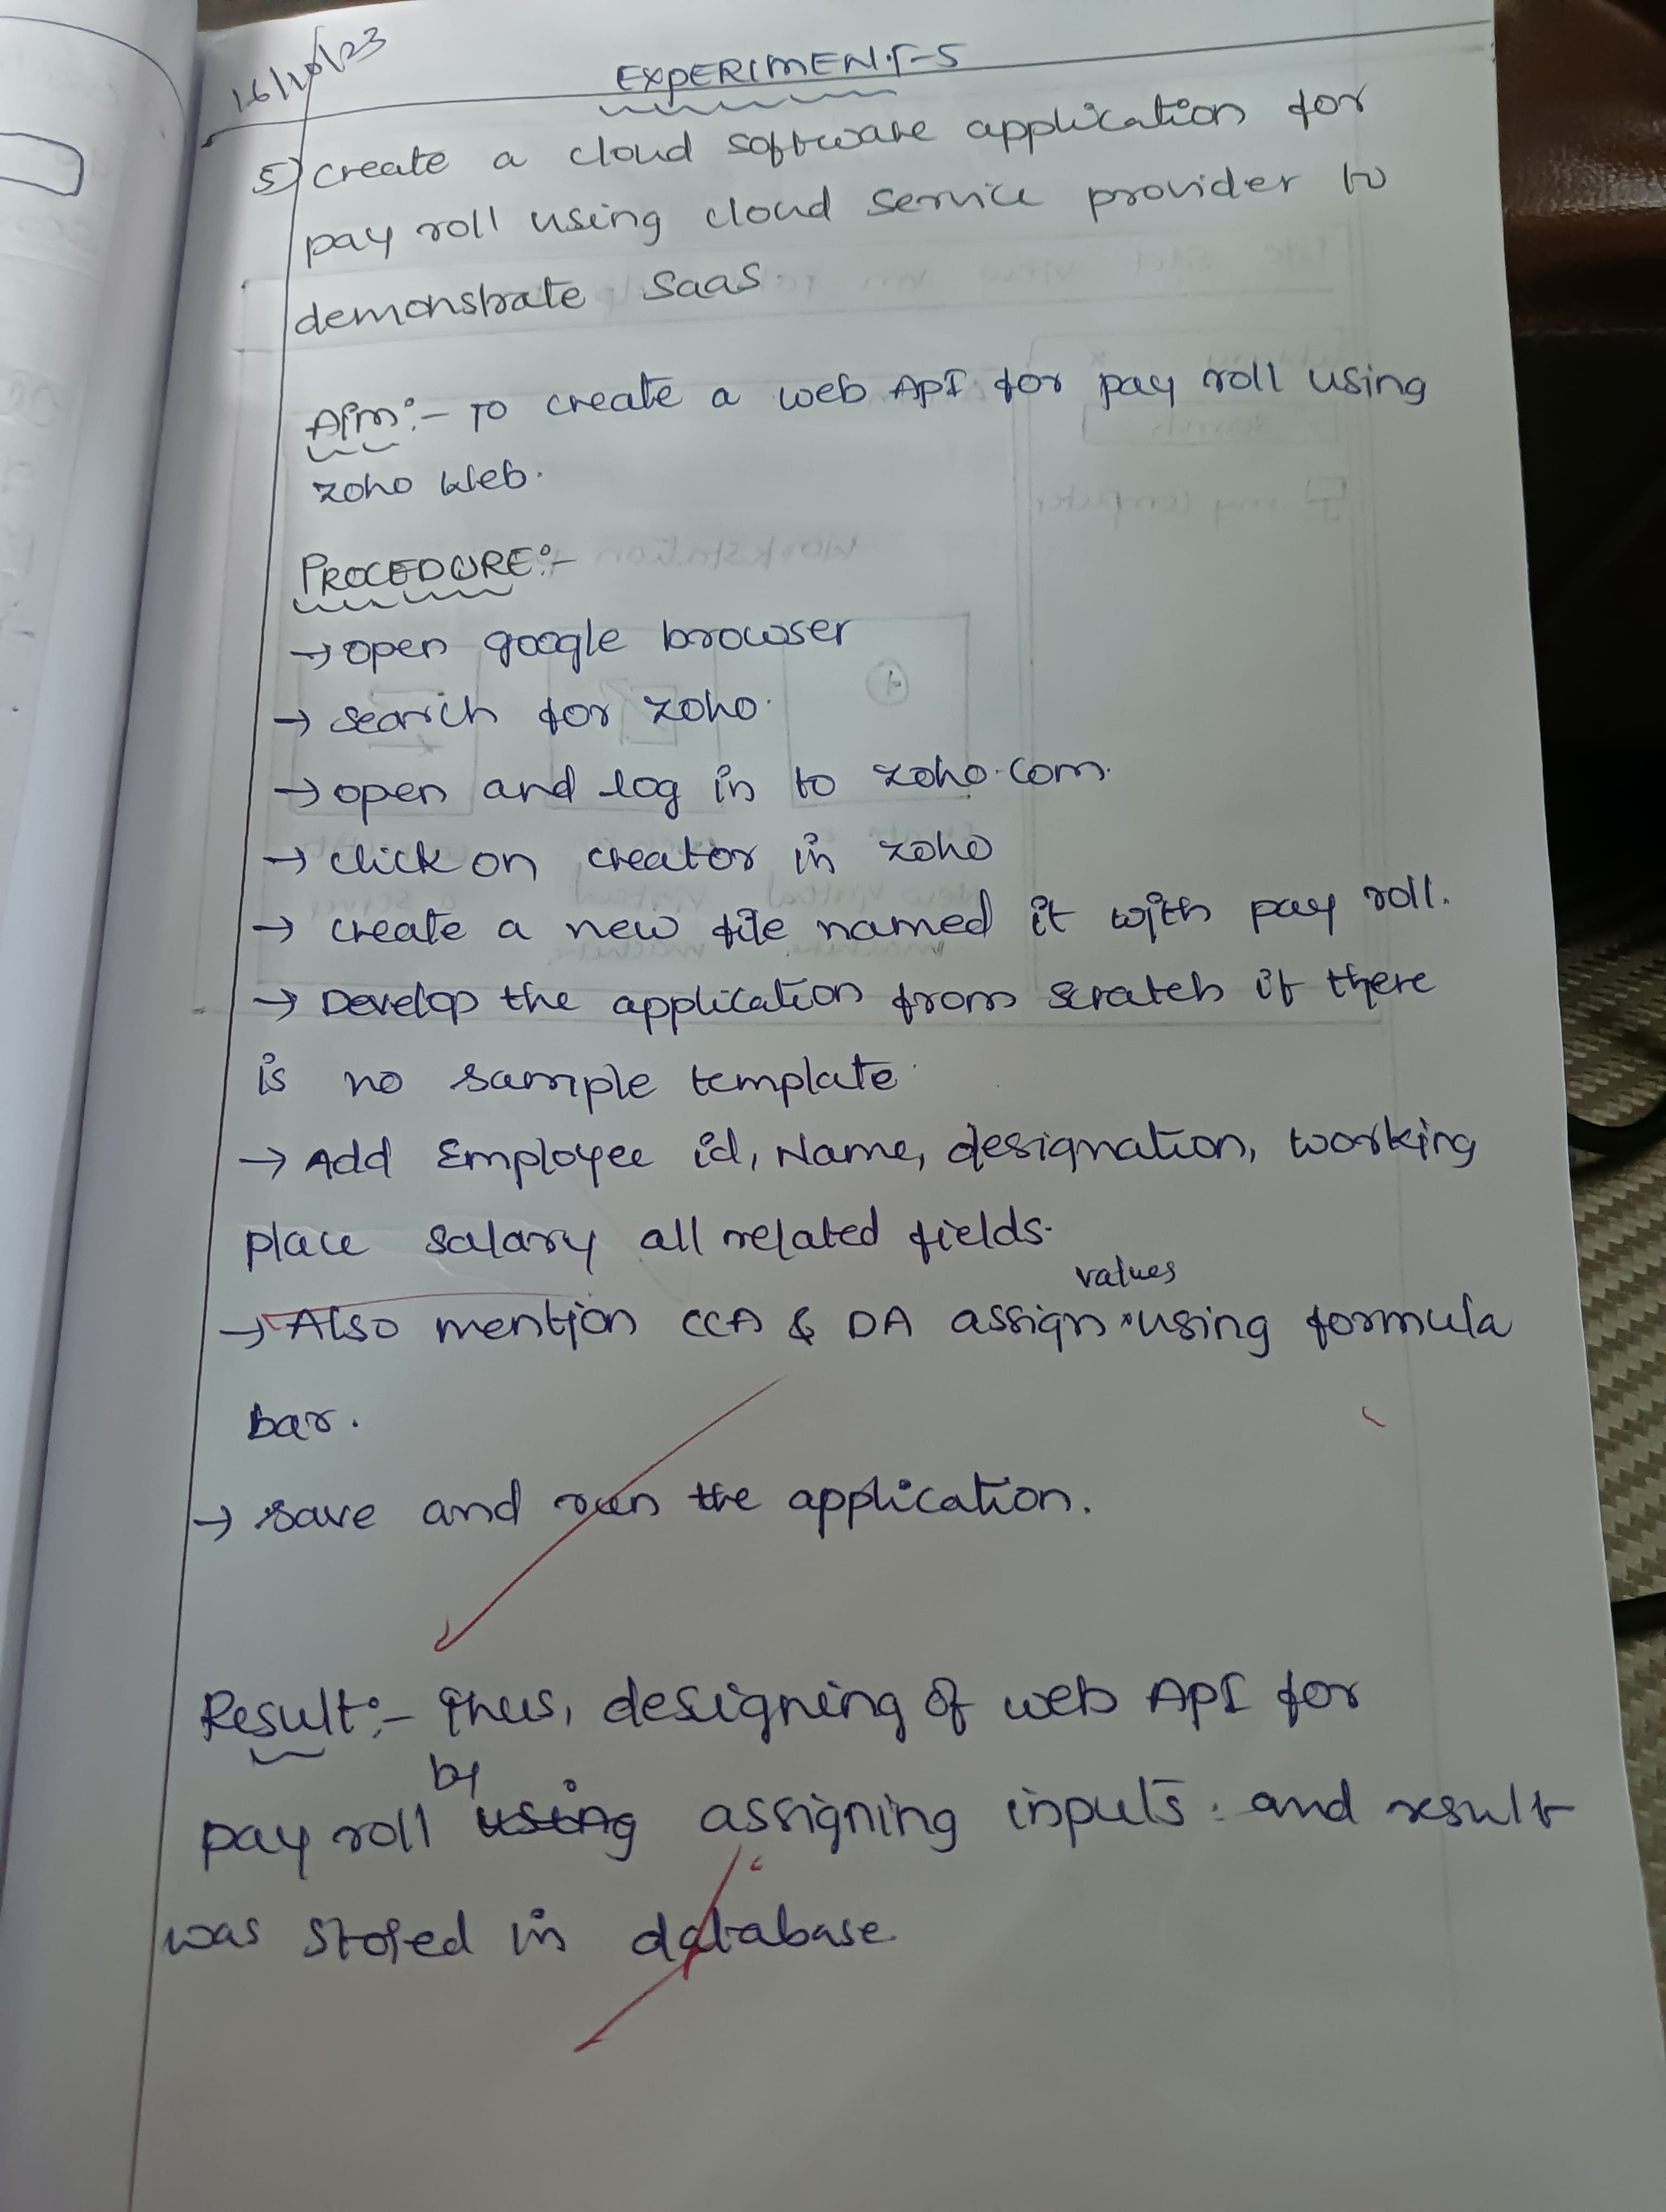 16/10/23
EXPERIMENT-5
5) create a cloud software application for
pay roll using cloud service provider to
demonstrate SaaS.
Aim:- To create a web API for pay roll using
zoho Web.
PROCEDURE:-
→ open google browser
→ search for zoho.
→ open and log in to zoho.com.
→ click on creator in zoho
→ create a new file named it with pay roll.
→ Develop the application from scratch if there
is no sample template.
→ Add Employee id, Name, designation, working
place salary all related fields.
values
→ Also mention CCA & DA assign using formula
bar.
→ save and run the application.
Result:- Thus, designing of web API for
by
pay roll using assigning inputs. and result
was stored in database